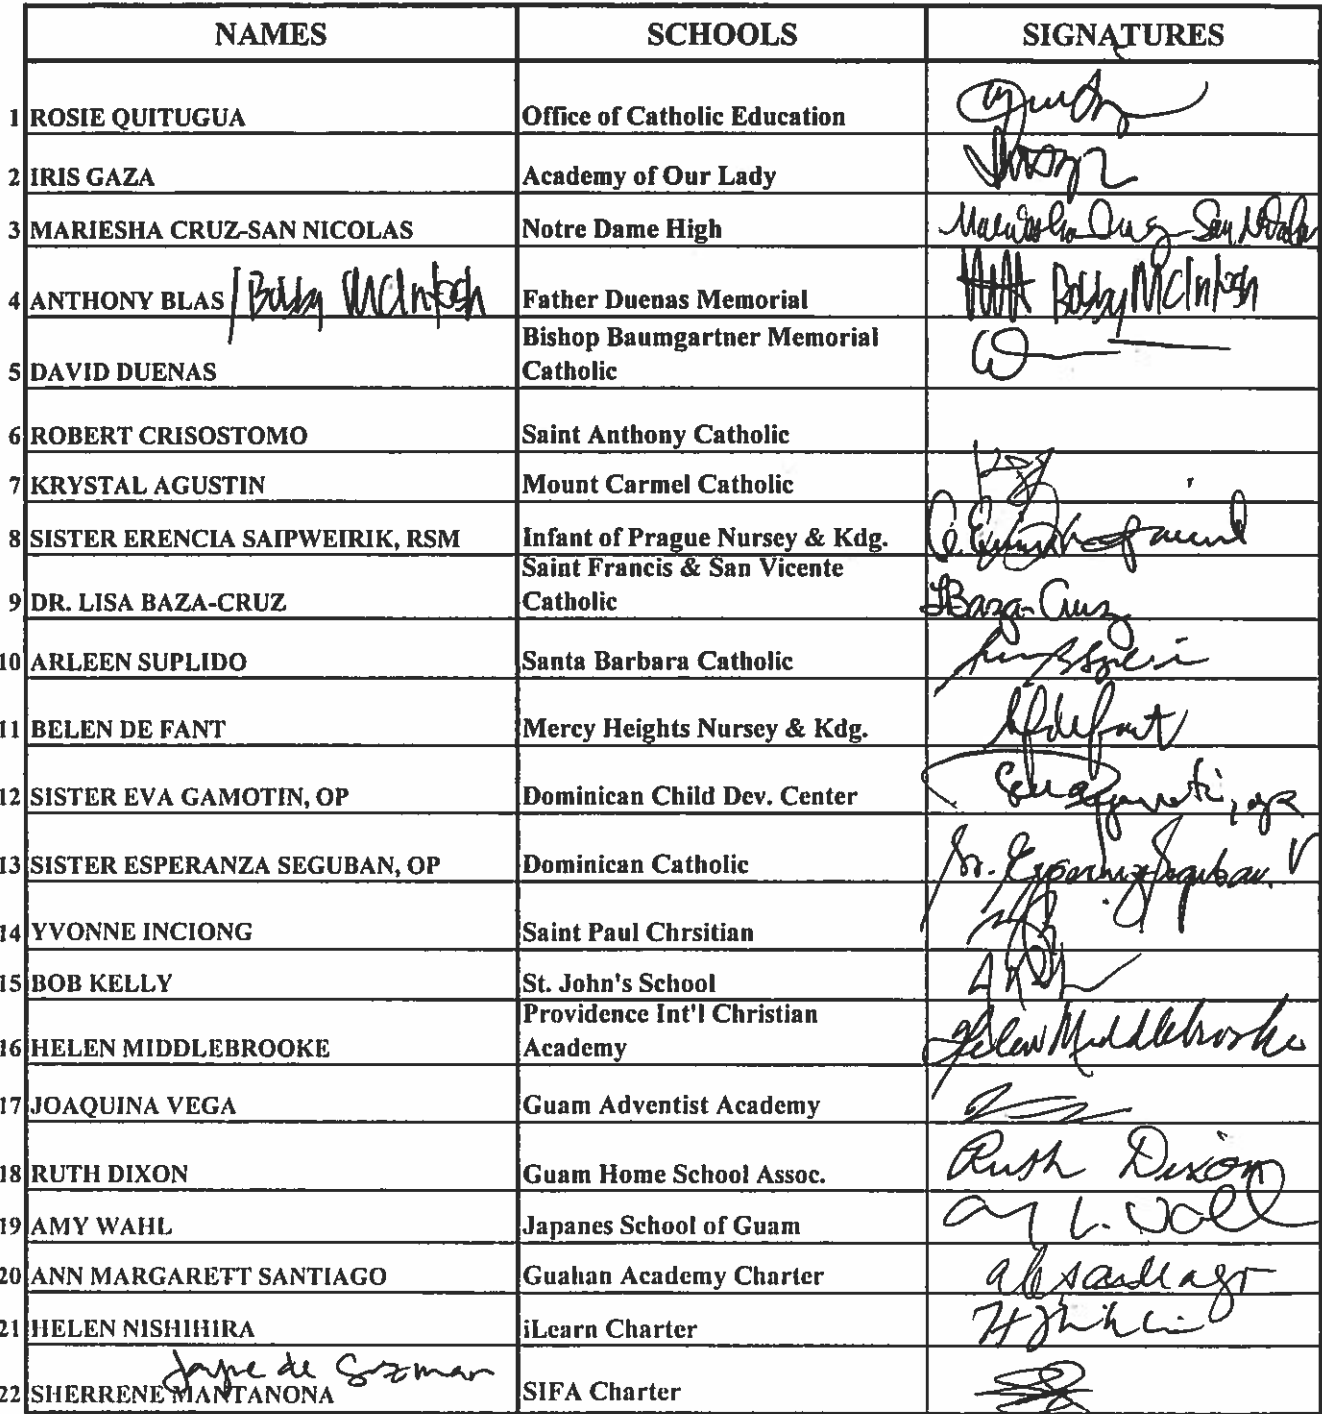 NAMES SCHOOLS SIGNATURES
1 ROSIE QUITUGUA Office of Catholic Education
2 IRIS GAZA Academy of Our Lady
3 MARIESHA CRUZ-SAN NICOLAS Notre Dame High Mariesha Cruz-San Nicolas
4 ANTHONY BLAS / Bobby McIntosh Father Duenas Memorial Bobby McIntosh
5 DAVID DUENAS Bishop Baumgartner Memorial
Catholic
6 ROBERT CRISOSTOMO Saint Anthony Catholic
7 KRYSTAL AGUSTIN Mount Carmel Catholic
8 SISTER ERENCIA SAIPWEIRIK, RSM Infant of Prague Nursey & Kdg.
9 DR. LISA BAZA-CRUZ Saint Francis & San Vicente
Catholic LBaza-Cruz
10 ARLEEN SUPLIDO Santa Barbara Catholic
11 BELEN DE FANT Mercy Heights Nursey & Kdg.
12 SISTER EVA GAMOTIN, OP Dominican Child Dev. Center
13 SISTER ESPERANZA SEGUBAN, OP Dominican Catholic Sr. Esperanza Seguban
14 YVONNE INCIONG Saint Paul Chrsitian
15 BOB KELLY St. John's School
16 HELEN MIDDLEBROOKE Providence Int'l Christian
Academy Helen Middlebrooke
17 JOAQUINA VEGA Guam Adventist Academy
18 RUTH DIXON Guam Home School Assoc. Ruth Dixon
19 AMY WAHL Japanes School of Guam
20 ANN MARGARETT SANTIAGO Guahan Academy Charter
21 HELEN NISHIHIRA iLearn Charter
Jayne de Guzman
22 SHERRENE MANTANONA SIFA Charter